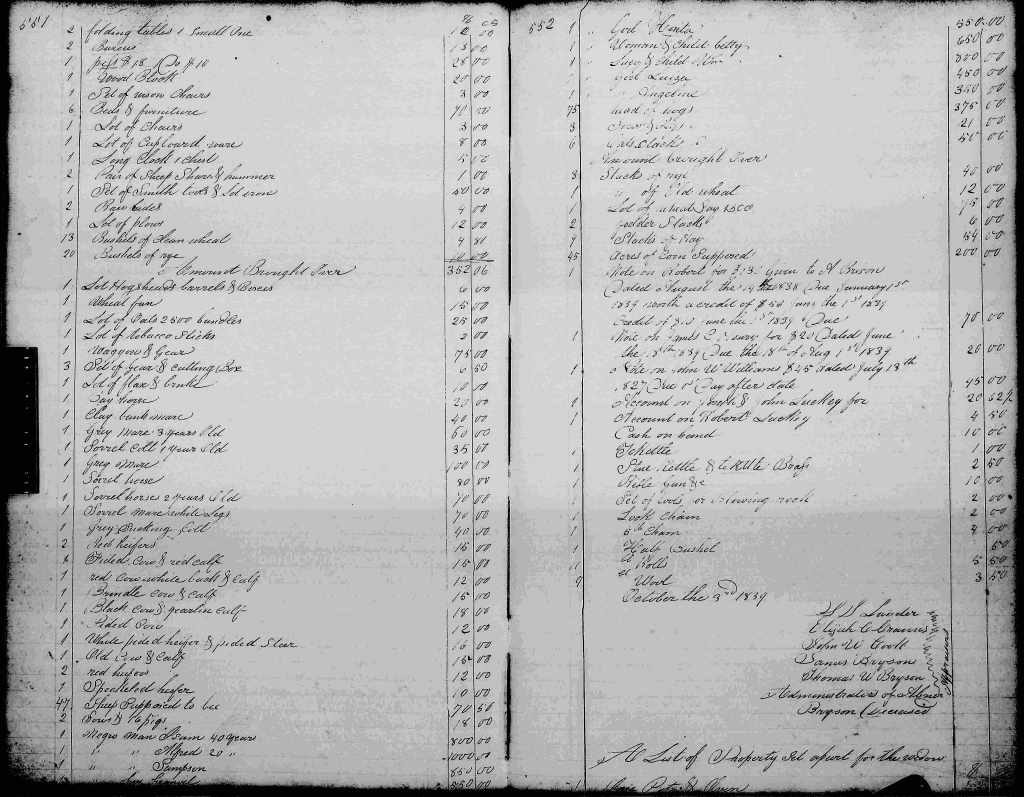 551
$ cs
2 folding tables 1 Small One 12 00
2 Bureaus 13 00
1 28 00
1 Wood Clock 20 00
1 Set of Chairs 3 00
6 Beds & furniture 70 00
1 Lot of Chairs 3 00
1 Lot of Cupboard ware 8 00
1 Long Clock 1 Chest 5 00
2 Pair of Sheep Shears & hammer 1 00
1 Set of Smith tools & Lot iron 50 00
2 Raw hides 4 00
1 Lot of plows 12 00
13 Bushels of Clean wheat 4 81
20 Bushels of rye 10 00
Amount Brought Over 352 06
1 Lot Hogsheads barrels & Boxes 6 00
1 Wheat fan 15 00
1 Lot of Oats 2500 bundles 25 00
1 Lot of tobacco Sticks 2 00
1 Waggon & Gear 75 00
3 Set of Gear & Cutting Box 6 50
1 Lot of flax & brake 10 00
1 Bay horse 20 00
1 Clay bank mare 40 00
1 Grey Mare 3 years Old 60 00
1 Sorrel Colt 1 year Old 35 00
1 Grey Mare 100 00
1 Sorrel horse 80 00
1 Sorrel horse 2 years Old 70 00
1 Sorrel mare white Legs 70 00
1 Grey Sucking Colt 40 00
2 Red heifers 16 00
Pided Cow & red calf 15 00
1 red Cow white back & Calf 12 00
1 Brindle Cow & Calf 15 00
1 Black Cow & yearlin Calf 18 00
1 Pided Cow 12 00
1 White pided heifer & pided Steer 16 00
1 Old Cow & Calf 15 00
2 red heifers 12 00
1 Speckeled heifer 10 00
47 Sheep Supposed to be 70 50
2 Sows & 16 pigs 18 00
1 Negro man Sam 40 year 800 00
1 " " Alfred 20 " 1000 00
1 " " Sampson 850 00
550 00
552
1 " Girl 350 00
1 " Woman & Child betty 650 00
1 " Lucy & Child 800 00
" Girl Louiza 450 00
1 " Angeline 350 00
75 head of hogs 375 00
3 21 00
6 Oats Stack 50 00
Amount brought Over
8 Stacks of rye 40 00
1 " of Old wheat 12 00
1 Lot of 75 00
2 fodder Stacks 6 00
7 Stacks of Hay 54 00
45 Acres of Corn Supposed 200 00
1 Note on Robert for Given to A Brison
Dated August the 14th 1838 Due January 1st
1839 worth a credit of $50 June the 1st 1839
Credit of June 1st 1839 Due 70 00
1 Note on $20 Dated June
the 18th 1839 Due the 18th of Aug 1st 1839 20 00
1 Note on John W Williams $45 dated July 18th
1827 Due 1 Day after date 45 00
1 Account on Joseph & John Luckey for 20 62½
1 Account on Robert Luckey 4 50
Cash on hand 10 00
1 Tekettle 1 00
1 Kettle & tekettle Brass 2 50
1 Rifle Gun &c 10 00
1 Set of 2 00
1 Lock Chain 2 00
1 5th Chain 4 00
1 Half Bushel 50
11 lb Rolls 5 50
7 lb Wool 3 50
October the 3rd 1839
Lander
Elijah C
John W Cook
James Bryson
Thomas W Bryson
Administrators of Abner
Bryson Deceased
Appraisers
A List of Property Set apart for the widow
$